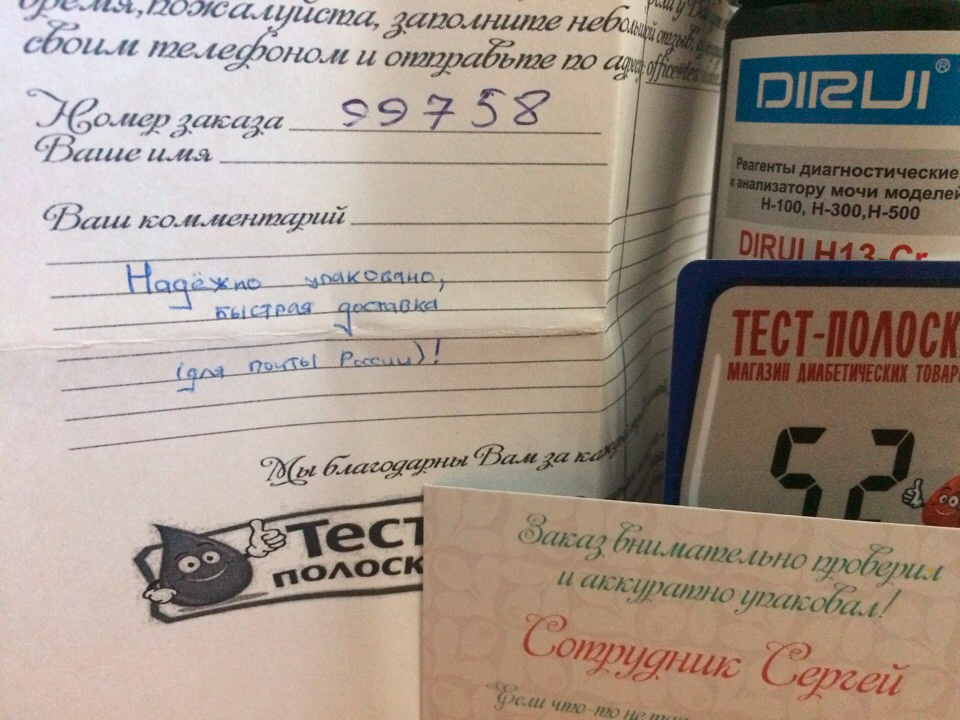 время, пожалуйста, заполните небольшой отзыв,
своим телефоном и отправьте по адресу
Номер заказа 99758
Ваше имя
Ваш комментарий
Надёжно упаковано,
быстрая доставка
(для почты России)!
Мы благодарны Вам за
Тест
полоск
DIRUI®
Реагенты диагностические
к анализатору мочи моделей
H-100, H-300,H-500
DIRUI H13-Cr
ТЕСТ-ПОЛОСК
МАГАЗИН ДИАБЕТИЧЕСКИХ ТОВАР
52
Заказ внимательно проверил
и аккуратно упаковал!
Сотрудник Сергей
Если что-то не